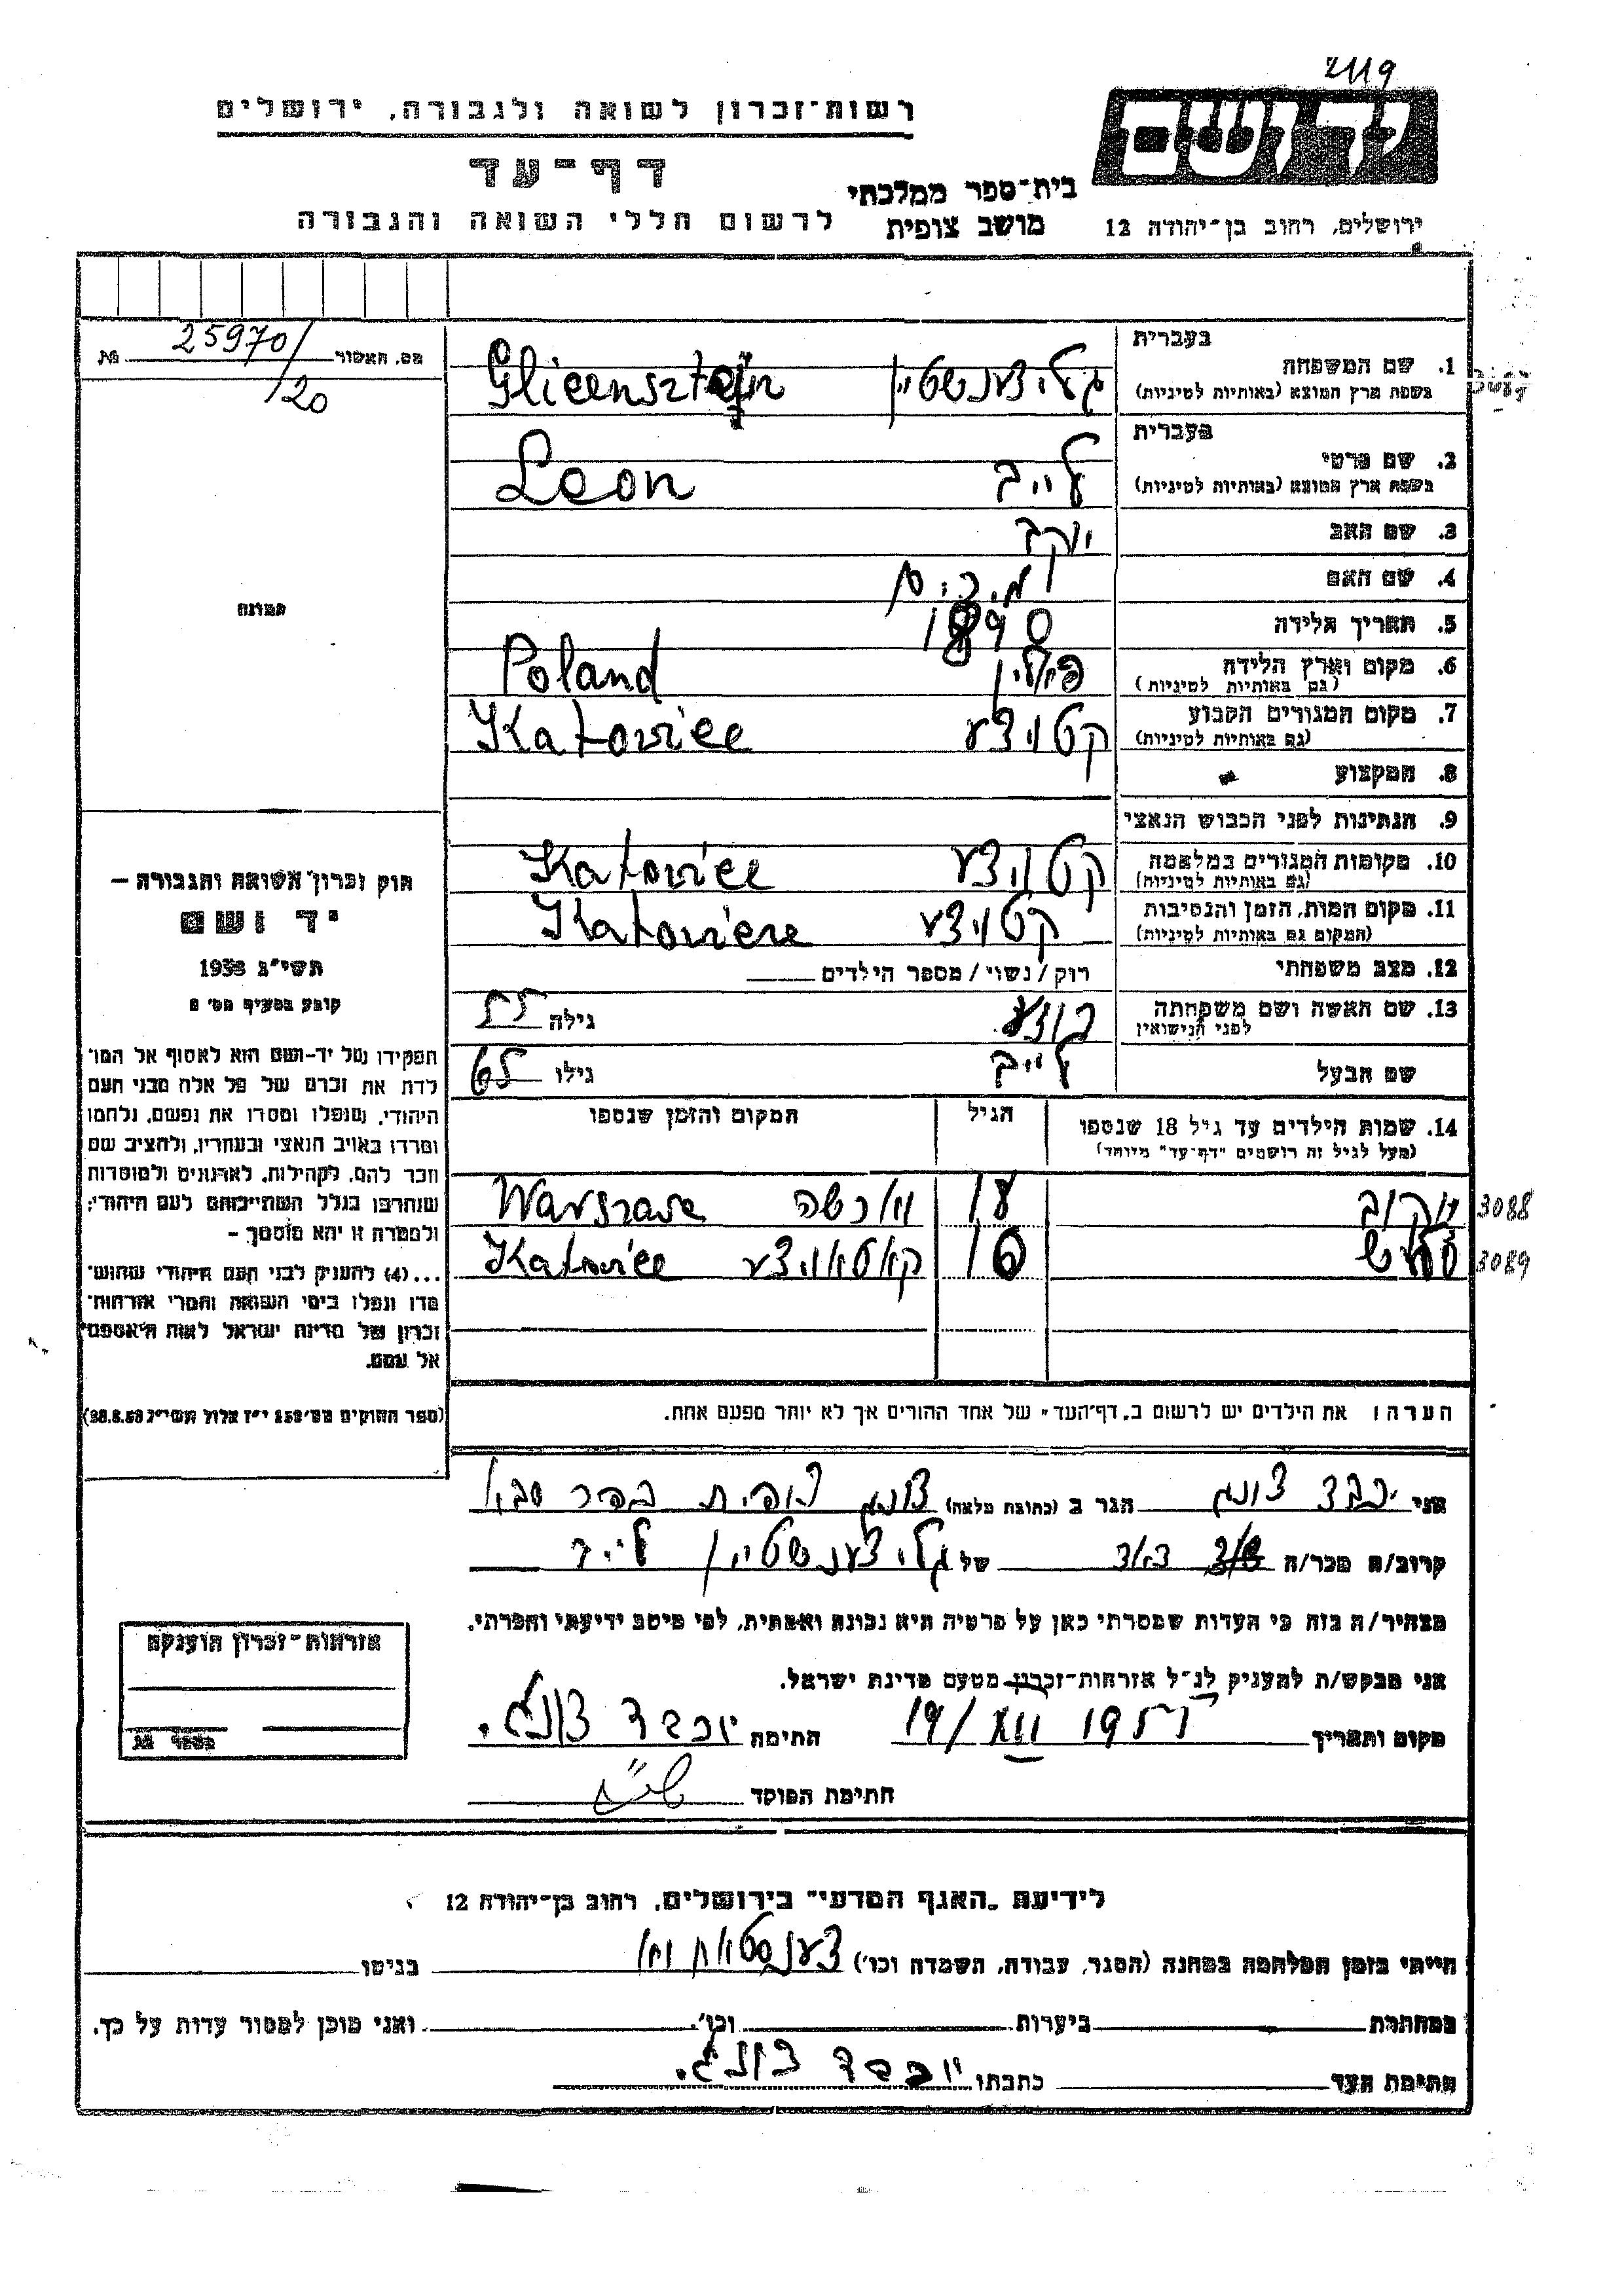 2119
רשות-זכרון לשואה ולגבורה, ירושלים
יד ושם
דף-עד
בית-ספר ממלכתי
לרשום חללי השואה והגבורה
מושב צופית
ירושלים, רחוב בן-יהודה 12
מס. האשור 25970/20 №
בעברית
1. שם המשפחה גליצענשטיין Glicensztejn
בשפת ארץ המוצא (באותיות לטיניות)
בעברית
2. שם פרטי לייב Leon
בשפת ארץ המוצא (באותיות לטיניות)
3. שם האב יעקב
4. שם האם
5. תאריך הלידה 1890
6. מקום וארץ הלידה פוילין Poland
(גם באותיות לטיניות)
7. מקום המגורים הקבוע קטוויצע Katowice
(גם באותיות לטיניות)
8. המקצוע
9. הנתינות לפני הכבוש הנאצי
10. מקומות המגורים במלחמה קטוויצע Katowice
(גם באותיות לטיניות)
11. מקום המות, הזמן והנסיבות קטוויצע
(המקום גם באותיות לטיניות)
12. מצב משפחתי רוק / נשוי / מספר הילדים
13. שם האשה ושם משפחתה גילה 55
לפני הנישואין
שם הבעל לייב גילו 65
14. שמות הילדים עד גיל 18 שנספו הגיל המקום והזמן שנספו
(מעל לגיל זה רושמים "דף-עד" מיוחד)
ווארשה Warszawa 3088
קאטאוויצע Katowice 3089
תמונה
חוק זכרון השואה והגבורה –
יד ושם
תשי"ג 1953
קובע בסעיף מס' 2
תפקידו של יד-ושם הוא לאסוף אל המו־
לדת את זכרם של כל אלה מבני העם
היהודי, שנפלו ומסרו את נפשם, נלחמו
ומרדו באויב הנאצי ובעוזריו, ולהציב שם
וזכר להם, לקהילות, לארגונים ולמוסדות
שנחרבו בגלל השתייכותם לעם היהודי;
ולמטרה זו יהא מוסמך –
...(4) להעניק לבני העם היהודי שהוש־
מדו ונפלו בימי השואה והמרי אזרחות־
זכרון של מדינת ישראל לאות היאספם
אל עמם.
(ספר החוקים מס' 132 י"ז אלול תשי"ג 28.8.53)
הערה: את הילדים יש לרשום ב„דף-העד" של אחד ההורים אך לא יותר מפעם אחת.
אני יוכבד צונג הגר ב (כתובת מלאה) צופית כפר סבא
קרוב/ה מכר/ה של גליצענשטיין לייב
מצהיר/ה בזה כי העדות שמסרתי כאן על פרטיה היא נכונה ואמתית, לפי מיטב ידיעתי והכרתי.
אני מבקש/ת להעניק לנ"ל אזרחות-זכרון מטעם מדינת ישראל.
מקום ותאריך 19/ 1955 חתימה יוכבד צונג.
חתימת הפוקד
אזרחות-זכרון הוענקה
מספר
לידיעת „האגף המדעי" בירושלים, רחוב בן-יהודה 12
הייתי בזמן המלחמה במחנה (הסגר, עבודה, השמדה וכו') בגיטו
במחתרת ביערות וכו' ואני מוכן למסור עדות על כך.
חתימת העד כתבתו יוכבד צונג.